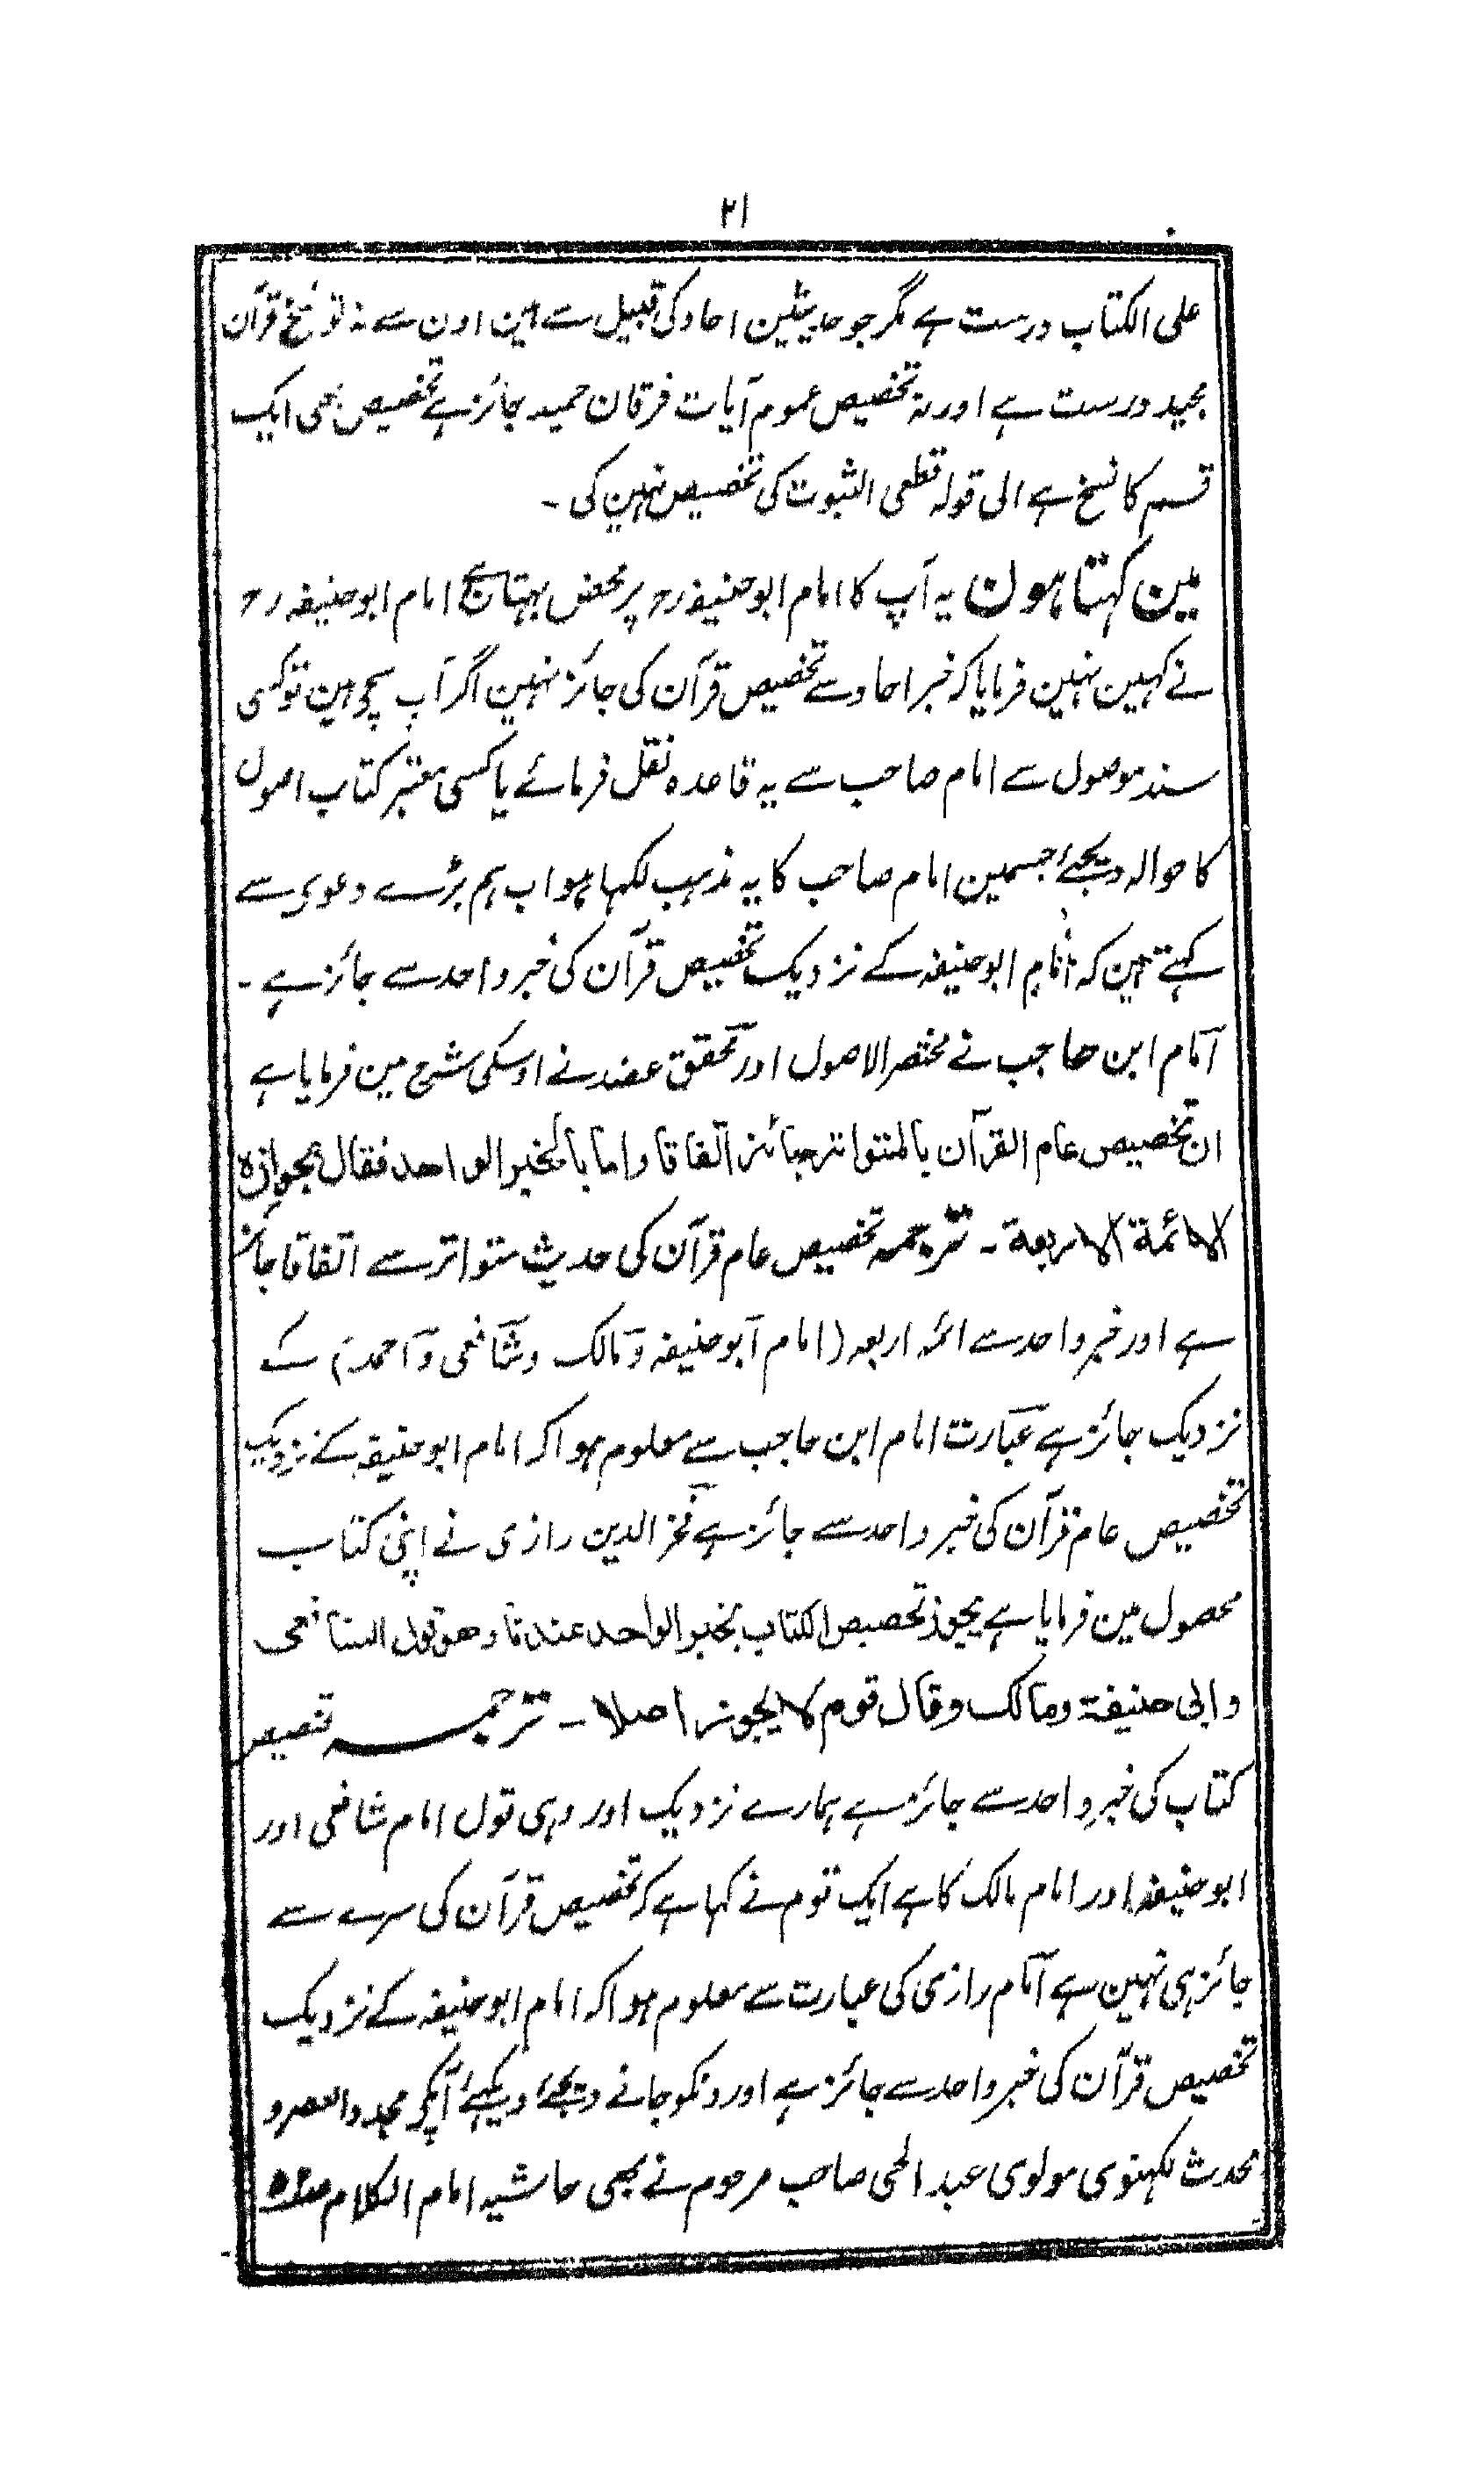 ۲۱
علی الکتاب درست ہے مگر جو حدیثین احاد کی قبیل سے ہین اون سے نہ تو نسخ قرآن
مجید درست ہے اور نہ تخصیص عموم آیات فرقان حمید جائز ہے تخصیص بھی ایک
قسم کا نسخ ہے الی قولہ قطعی الثبوت کی تخصیص نہین کی ۔
مین کہتا ہون یہ آپ کا امام ابو حنیفہ رح پر محض بہتان ہے امام ابو حنیفہ رح
نے کہین نہین فرمایا کہ خبر احاد سے تخصیص قرآن کی جائز نہین اگر آپ سچے ہین تو کسی
سند موصول سے امام صاحب سے یہ قاعدہ نقل فرمائے یا کسی معتبر کتاب اصول
کا حوالہ دیجئے جسمین امام صاحب کا یہ مذہب لکہا ہو اب ہم بڑے دعوی سے
کہتے ہین کہ امام ابو حنیفہ کے نزدیک تخصیص قرآن کی خبر واحد سے جائز ہے ۔
امام ابن حاجب نے مختصر الاصول اور محقق عضد نے اوسکی شرح مین فرمایا ہے
ان تخصیص عام القرآن بالمتواتر جائز اتفاقا واما بالخبر الواحد فقال بجوازہ
الائمة الاربعة ۔ ترجمہ تخصیص عام قرآن کی حدیث متواتر سے اتفاقا جائز
ہے اور خبر واحد سے ائمہ اربعہ (امام ابو حنیفہ و مالک و شافعی و احمد) کے
نزدیک جائز ہے عبارت امام ابن حاجب سے معلوم ہوا کہ امام ابو حنیفہ کے نزدیک
تخصیص عام قرآن کی خبر واحد سے جائز ہے فخر الدین رازی نے اپنی کتاب
محصول مین فرمایا ہے یجوز تخصیص الکتاب بخبر الواحد عندنا وهو قول الشافعی
وابی حنیفة ومالک وقال قوم لا یجوز اصلا ۔ ترجمہ تخصیص
کتاب کی خبر واحد سے جائز ہے ہمارے نزدیک اور وہی قول امام شافعی اور
ابو حنیفہ اور امام مالک کا ہے ایک قوم نے کہا ہے کہ تخصیص قرآن کی سرے سے
جائز ہی نہین ہے امام رازی کی عبارت سے معلوم ہوا کہ امام ابو حنیفہ کے نزدیک
تخصیص قرآن کی خبر واحد سے جائز ہے اور ونکو جانے دیجئے دیکہئے آپکے مجدد العصر و
محدث لکہنوی مولوی عبد الحی صاحب مرحوم نے بھی حاشیہ امام الکلام